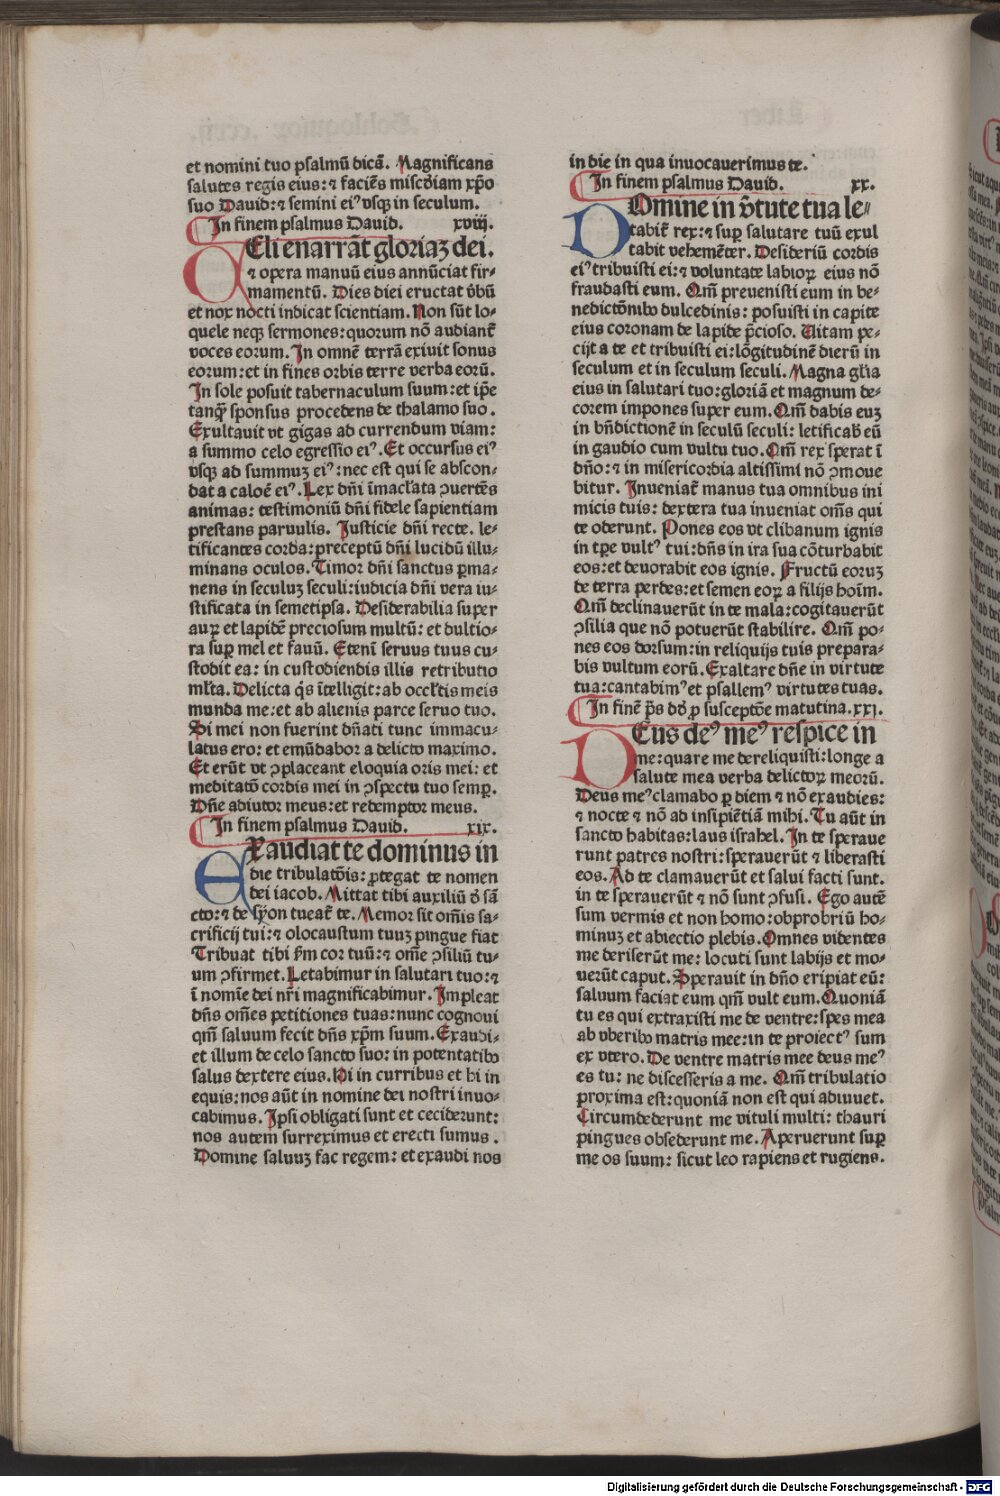 et nomini tuo psalmū dicā. Magnificans
salutes regis eius: ⁊ faciēs miscd̄iam xp̄o
suo Dauid: ⁊ semini eiꝰ vsq̄ in seculum.
In finem psalmus Dauid. xviij.
Celi enarrāt gloriaꝫ dei.
⁊ opera manuū eius annūciat fir⸗
mamentū. Dies diei eructat v̄bū
et nox nocti indicat scientiam. Non sūt lo⸗
quele neqꝫ sermones: quorum nō audiant̄
voces eorum. In omnē terrā exiuit sonus
eorum: et in fines orbis terre verba eorū.
In sole posuit tabernaculum suum: et ip̄e
tanqꝫ sponsus procedens de thalamo suo.
Exultauit vt gigas ad currendum viam:
a summo celo egressio eiꝰ. Et occursus eiꝰ
vsqꝫ ad summuꝫ eiꝰ: nec est qui se abscon⸗
dat a caloē eiꝰ. Lex dn̄i īmacl̄ata ↄuertēs
animas: testimoniū dn̄i fidele sapientiam
prestans paruulis. Justicie dn̄i recte. le⸗
tificantes corda: preceptū dn̄i lucidū illu⸗
minans oculos. Timor dn̄i sanctus ꝑma⸗
nens in seculuꝫ seculi: iudicia dn̄i vera iu⸗
stificata in semetipsa. Desiderabilia super
auꝝ et lapidē preciosum multū: et dultio⸗
ra suꝑ mel et fauū. Etenī seruus tuus cu⸗
stodit ea: in custodiendis illis retributio
ml̄ta. Delicta q̄s ītelligit: ab occl̄tis meis
munda me: et ab alienis parce seruo tuo.
Si mei non fuerint dn̄ati tunc immacu⸗
latus ero: et emūdabor a delicto maximo.
Et erūt vt ↄplaceant eloquia oris mei: et
meditatō cordis mei in ↄspectu tuo semꝑ.
Dn̄e adiutor meus: et redemptor meus.
In finem psalmus Dauid. xix.
Exaudiat te dominus in
die tribulatōis: ꝓtegat te nomen
dei iacob. Mittat tibi auxiliū d̄ sā
cto: ⁊ de syon tueat̄ te. Memor sit om̄is sa⸗
crificij tui: ⁊ olocaustum tuuꝫ pingue fiat
Tribuat tibi ẜm cor tuū: ⁊ om̄e ↄsiliū tu⸗
um ↄfirmet. Letabimur in salutari tuo: ⁊
ī nomīe dei nr̄i magnificabimur. Impleat
dn̄s om̄es petitiones tuas: nunc cognoui
qm̄ saluum fecit dn̄s xp̄m suum. Exaudi⸗
et illum de celo sancto suo: in potentatibꝫ
salus dextere eius. Hi in curribus et hi in
equis: nos aūt in nomine dei nostri inuo⸗
cabimus. Ipsi obligati sunt et ceciderunt:
nos autem surreximus et erecti sumus.
Domine saluuꝫ fac regem: et exaudi nos
in die in qua inuocauerimus te.
In finem psalmus Dauid. xx.
Domine in v̄tute tua le⸗
tabit̄ rex: ⁊ suꝑ salutare tuū exul
tabit vehemēter. Desideriū cordis
eiꝰ tribuisti ei: ⁊ voluntate labioꝝ eius nō
fraudasti eum. Qm̄ preuenisti eum in be⸗
nedictōnibꝫ dulcedinis: posuisti in capite
eius coronam de lapide p̄cioso. Uitam pe⸗
cijt a te et tribuisti ei: lōgitudinē dierū in
seculum et in seculum seculi. Magna gl̄ia
eius in salutari tuo: gloriā et magnum de⸗
corem impones super eum. Qm̄ dabis euꝫ
in bn̄dictionē in seculū seculi: letificab̄ eū
in gaudio cum vultu tuo. Qm̄ rex sperat ī
dn̄o: ⁊ in misericordia altissimi nō ↄmoue
bitur. Inueniat̄ manus tua omnibus ini
micis tuis: dextera tua inueniat om̄s qui
te oderunt. Pones eos vt clibanum ignis
in tꝑe vultꝰ tui: dn̄s in ira sua cōturbabit
eos: et deuorabit eos ignis. Fructū eoruꝫ
de terra perdes: et semen eoꝝ a filijs hoīm.
Qm̄ declinauerūt in te mala: cogitauerūt
ↄsilia que nō potuerūt stabilire. Qm̄ po⸗
nes eos dorsum: in reliquijs tuis prepara⸗
bis vultum eorū. Exaltare dn̄e in virtute
tua: cantabimꝰ et psallemꝰ virtutes tuas.
In finē p̄s dd̄ ꝓ susceptōe matutina. xxi.
Deus deꝰ meꝰ respice in
me: quare me dereliquisti: longe a
salute mea verba delictoꝝ meorū.
Deus meꝰ clamabo ꝑ diem ⁊ nō exaudies:
⁊ nocte ⁊ nō ad insipiētiā mihi. Tu aūt in
sancto habitas: laus israhel. In te speraue
runt patres nostri: sperauerūt ⁊ liberasti
eos. Ad te clamauerūt et salui facti sunt.
in te sperauerūt ⁊ nō sunt ↄfusi. Ego autē
sum vermis et non homo: obprobriū ho⸗
minuꝫ et abiectio plebis. Omnes videntes
me deriserūt me: locuti sunt labijs et mo⸗
uerūt caput. Sperauit in dn̄o eripiat eū:
saluum faciat eum qm̄ vult eum. Quoniā
tu es qui extraxisti me de ventre: spes mea
ab vberibꝫ matris mee: in te proiectꝰ sum
ex vtero. De ventre matris mee deus meꝰ
es tu: ne discesseris a me. Qm̄ tribulatio
proxima est: quoniā non est qui adiuuet.
Circumdederunt me vituli multi: thauri
pingues obsederunt me. Aperuerunt suꝑ
me os suum: sicut leo rapiens et rugiens.
Digitalisierung gefördert durch die Deutsche Forschungsgemeinschaft - DFG